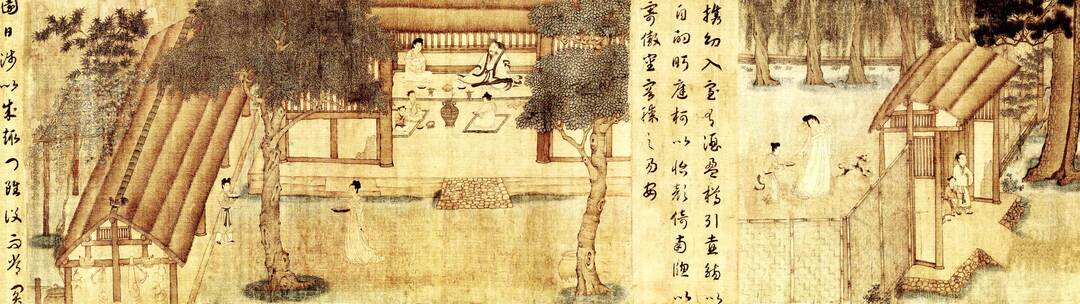 携幼入室有酒盈樽引壺觴以
自酌眄庭柯以怡顏倚南牕以
寄傲審容膝之易安
園日涉以成趣門雖設而常關